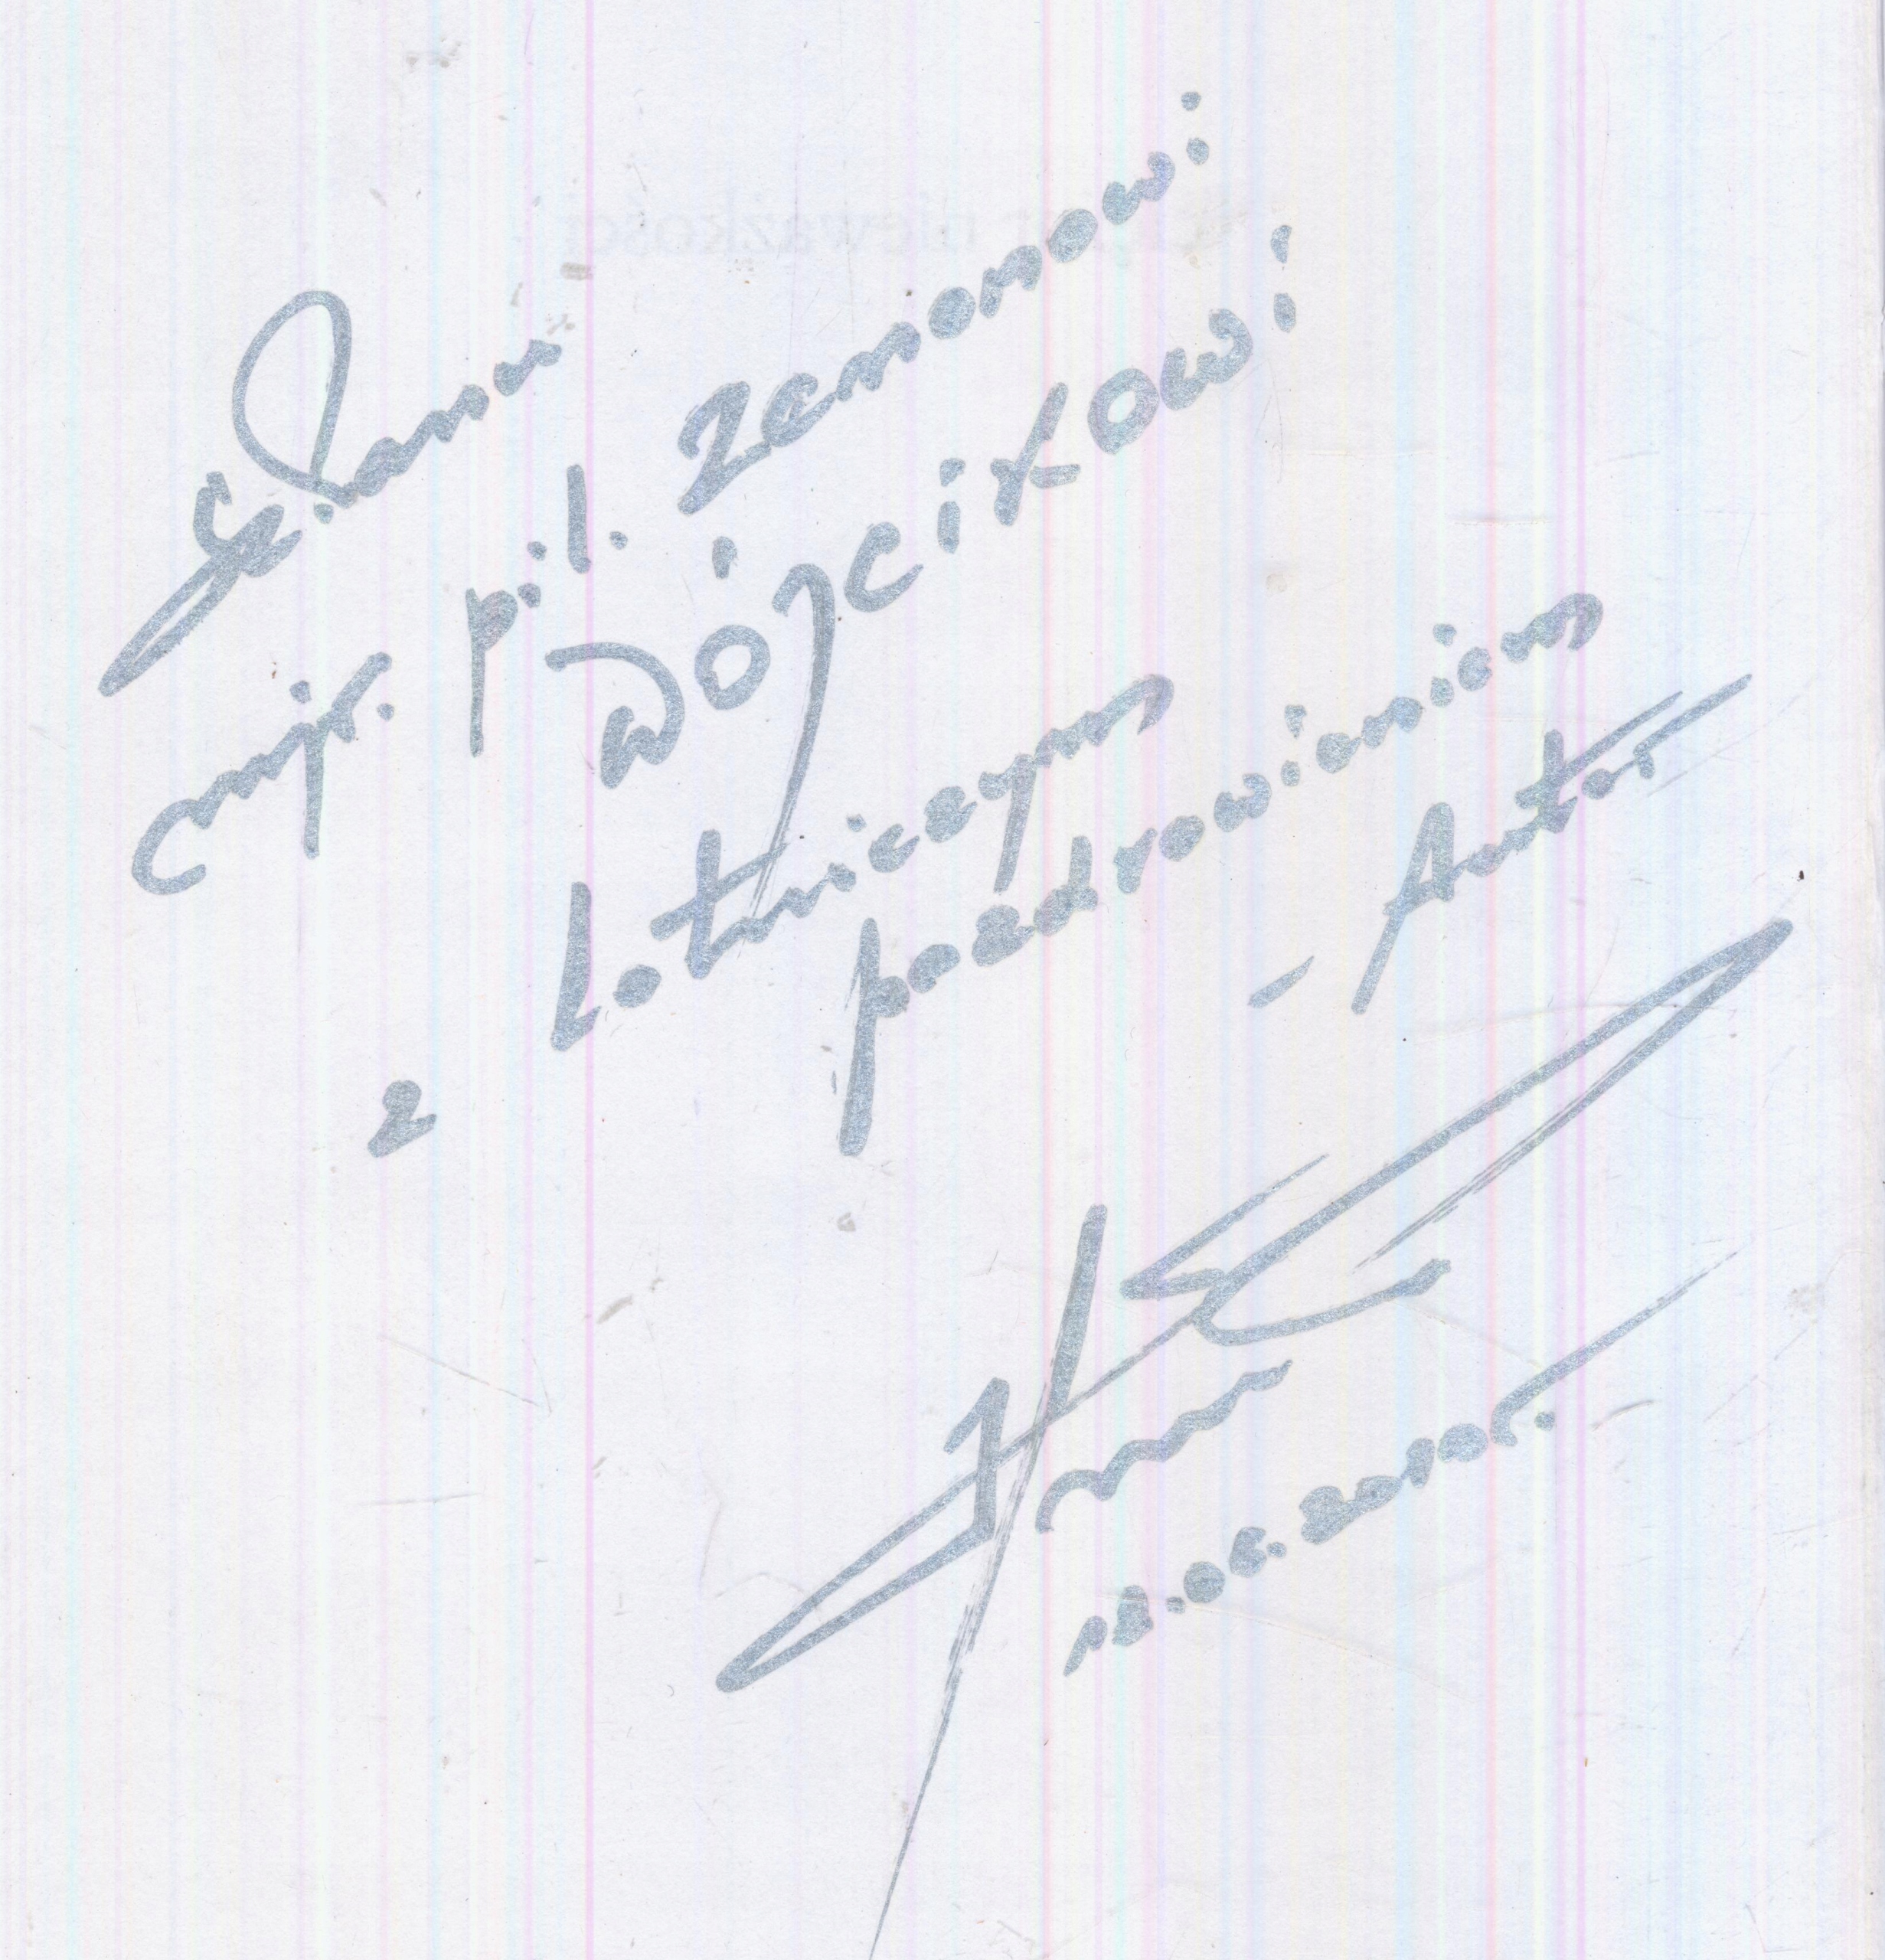 Panu
mjr. pil. Zenonowi
Wójcikowi
z lotniczym
pozdrowieniem
- Autor
12.06.2010r.
nieważkości